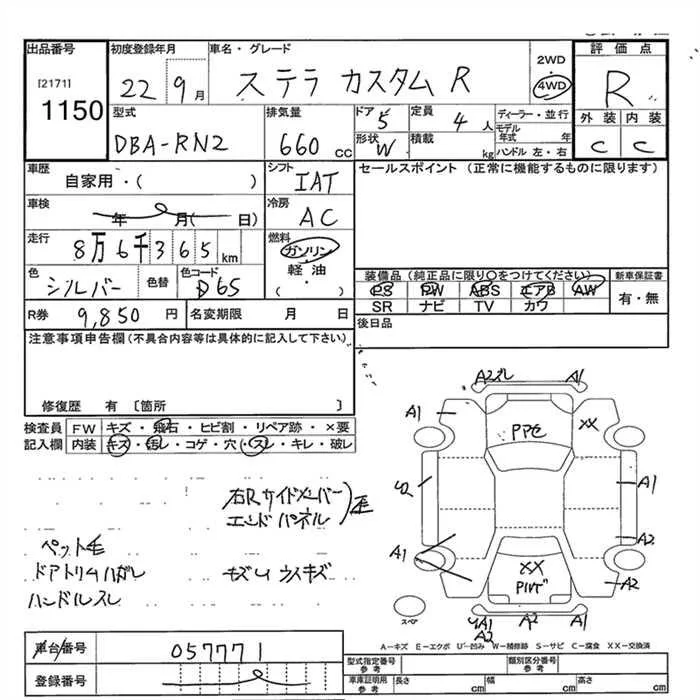 出品番号 初度登録年月 車名・グレード 2WD 評価点
[2171] 22 9月 ステラ カスタム R 4WD R
1150
型式 排気量 ドア 定員 ディーラー・並行 外装 内装
DBA-RN2 660 cc 5 4 人 モデル年式 年 C C
形状 W 積載 kg ハンドル 左・右
車歴 シフト セールスポイント (正常に機能するものに限ります)
自家用・( ) IAT
車検 冷房
年 月( 日) AC
走行 燃料
8万6千365km ガソリン
色 色替 色コード 軽油 装備品 (純正品に限り○をつけてください) 新車保証書
シルバー D65 ( ) PS PW ABS エアB AW 有・無
SR ナビ TV カワ
R券 9,850 円 名変期限 月 日 後日品
注意事項申告欄 (不具合内容等は具体的に記入して下さい)
修復歴 有 〔箇所 〕
検査員 FW キズ・飛石・ヒビ割・リペア跡・×要
記入欄 内装 キズ・汚レ・コゲ・穴・スレ・キレ・破レ
A2ズレ A1
A1 XX
PPモ
U2 A1
A2
A1 XX A2
右Rサイドメンバー
エンドパネル
ペット毛
ドアトリムハガレ キズ
ハンドルスレ
スペア A2 A1
A2
A-キズ E-エクボ U-凹み W-補修跡 S-サビ C-腐食 XX-交換済
車台番号 057771
登録番号
型式指定番号 参考 類別区分番号 参考
車庫証明用 参考 長さ cm 幅 cm 高さ cm